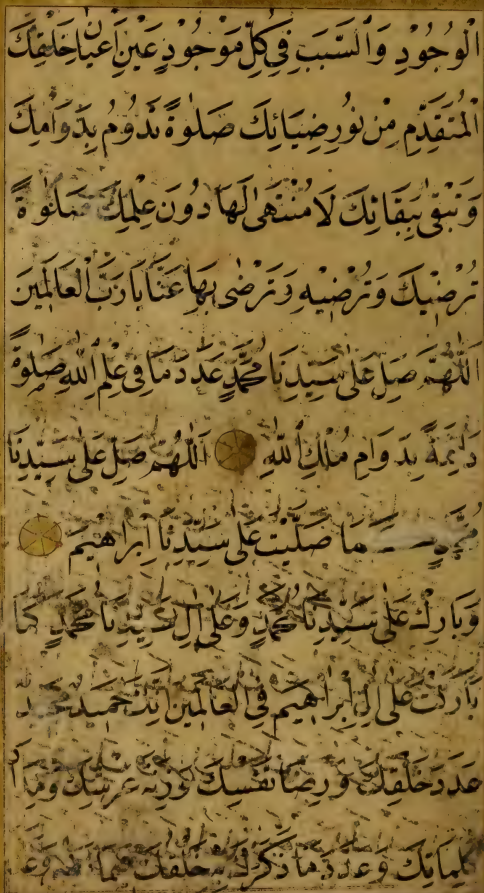 الْوُجُودِ وَالسَّبَبِ فِي كُلِّ مَوْجُودٍ عَيْنِ أَعْيَانِ خَلْقِكَ
الْمُتَقَدِّمِ مِنْ نُورِ ضِيَائِكَ صَلٰوةً تَدُومُ بِدَوَامِكَ
وَتَبْقٰى بِبَقَائِكَ لَا مُنْتَهٰى لَهَا دُونَ عِلْمِكَ صَلٰوةً
تُرْضِيكَ وَتُرْضِيهِ وَتَرْضٰى بِهَا عَنَّا يَا رَبَّ الْعَالَمِينَ
اَللّٰهُمَّ صَلِّ عَلٰى سَيِّدِنَا مُحَمَّدٍ عَدَدَ مَا فِي عِلْمِ اللّٰهِ صَلٰوةً
دَائِمَةً بِدَوَامِ مُلْكِ اللّٰهِ اَللّٰهُمَّ صَلِّ عَلٰى سَيِّدِنَا
مُحَمَّدٍ مَا صَلَّيْتَ عَلٰى سَيِّدِنَا اِبْرَاهِيمَ
وَبَارِكْ عَلٰى سَيِّدِنَا مُحَمَّدٍ وَعَلٰى اٰلِ سَيِّدِنَا مُحَمَّدٍ كَمَا
بَارَكْتَ عَلٰى اٰلِ اِبْرَاهِيمَ فِي الْعَالَمِينَ حَمِيدٌ مَجِيدٌ
عَدَدَ خَلْقِكَ وَرِضَا نَفْسِكَ وَزِنَةَ عَرْشِكَ
كَلِمَاتِكَ وَعَدَدَ مَا ذَكَرَكَ بِهِ خَلْقُكَ فِيمَا